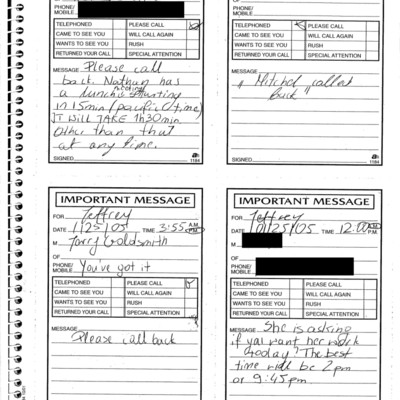 PHONE/
MOBILE
TELEPHONED PLEASE CALL
CAME TO SEE YOU WILL CALL AGAIN
WANTS TO SEE YOU RUSH
RETURNED YOUR CALL SPECIAL ATTENTION
MESSAGE Please call
back. Nathan has
a lunch meeting
in 15min (pacific time)
IT Will TAKE 1h30min.
Other than that
at any time.
SIGNED
1184
PHONE/
MOBILE
TELEPHONED PLEASE CALL
CAME TO SEE YOU WILL CALL AGAIN
WANTS TO SEE YOU RUSH
RETURNED YOUR CALL SPECIAL ATTENTION
MESSAGE
" Mitchel called
Back "
SIGNED
1184
IMPORTANT MESSAGE
FOR Jeffrey
DATE 1/25/05 TIME 3:55 A.M. P.M.
M Terry Goldsmith
OF
PHONE/
MOBILE You've got it
TELEPHONED PLEASE CALL
CAME TO SEE YOU WILL CALL AGAIN
WANTS TO SEE YOU RUSH
RETURNED YOUR CALL SPECIAL ATTENTION
MESSAGE
Please call back
IMPORTANT MESSAGE
FOR Jeffrey
DATE 01/25/05 TIME 12:00 A.M. P.M.
M
OF
PHONE/
MOBILE
TELEPHONED PLEASE CALL
CAME TO SEE YOU WILL CALL AGAIN
WANTS TO SEE YOU RUSH
RETURNED YOUR CALL SPECIAL ATTENTION
MESSAGE She is asking
if you want her work
today? The best
time will be 2pm
or 9:45pm.